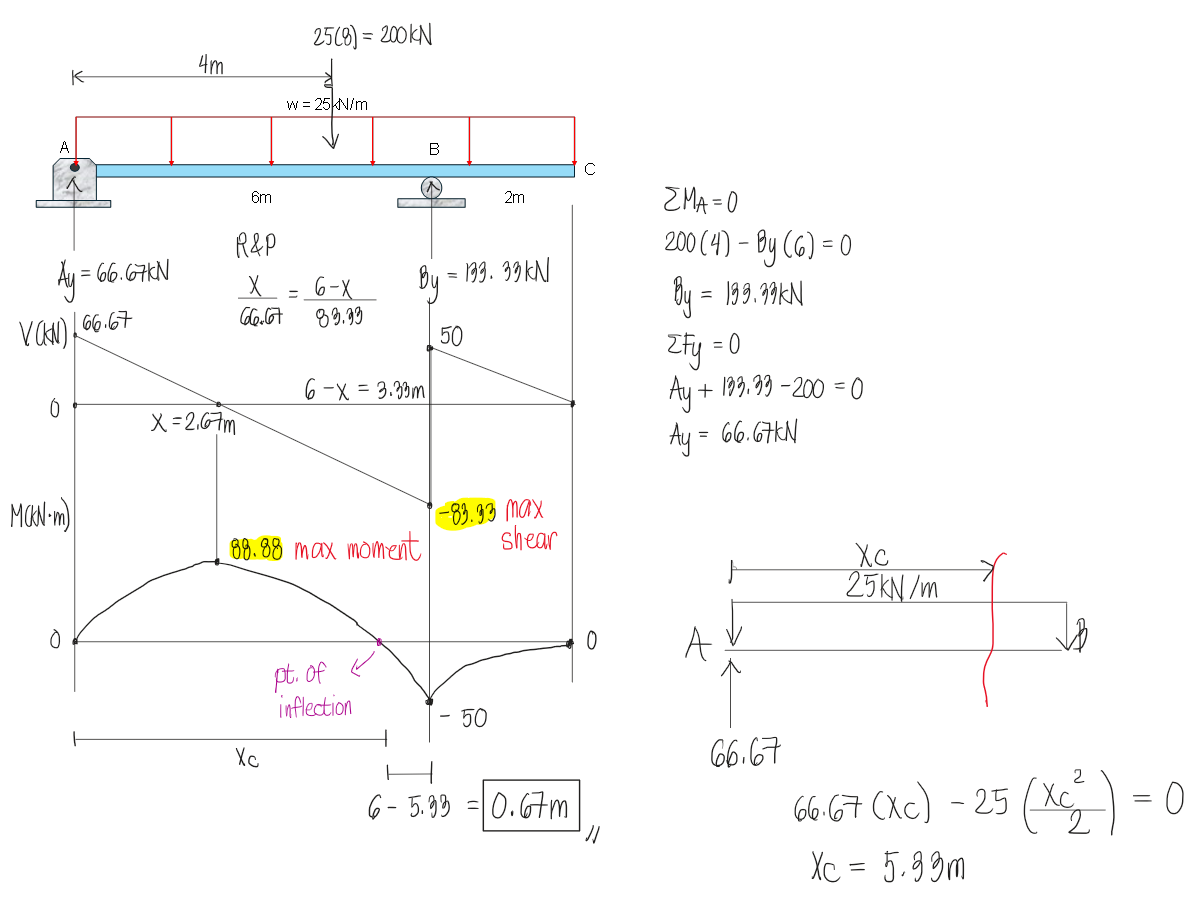 25(8) = 200kN
4m
w = 25kN/m
A
B
C
6m
2m
Ay = 66.67kN
R&P
x/66.67 = 6-x/83.33
By = 133.33kN
V(kN)
66.67
50
0
6-x = 3.33m
x = 2.67m
-83.33 max shear
M(kN·m)
88.88 max moment
0
0
pt. of
inflection
-50
xc
6 - 5.33 = 0.67m
ΣMA = 0
200(4) - By(6) = 0
By = 133.33kN
ΣFy = 0
Ay + 133.33 - 200 = 0
Ay = 66.67kN
xc
25kN/m
A
B
66.67
66.67(xc) - 25(xc²/2) = 0
xc = 5.33m